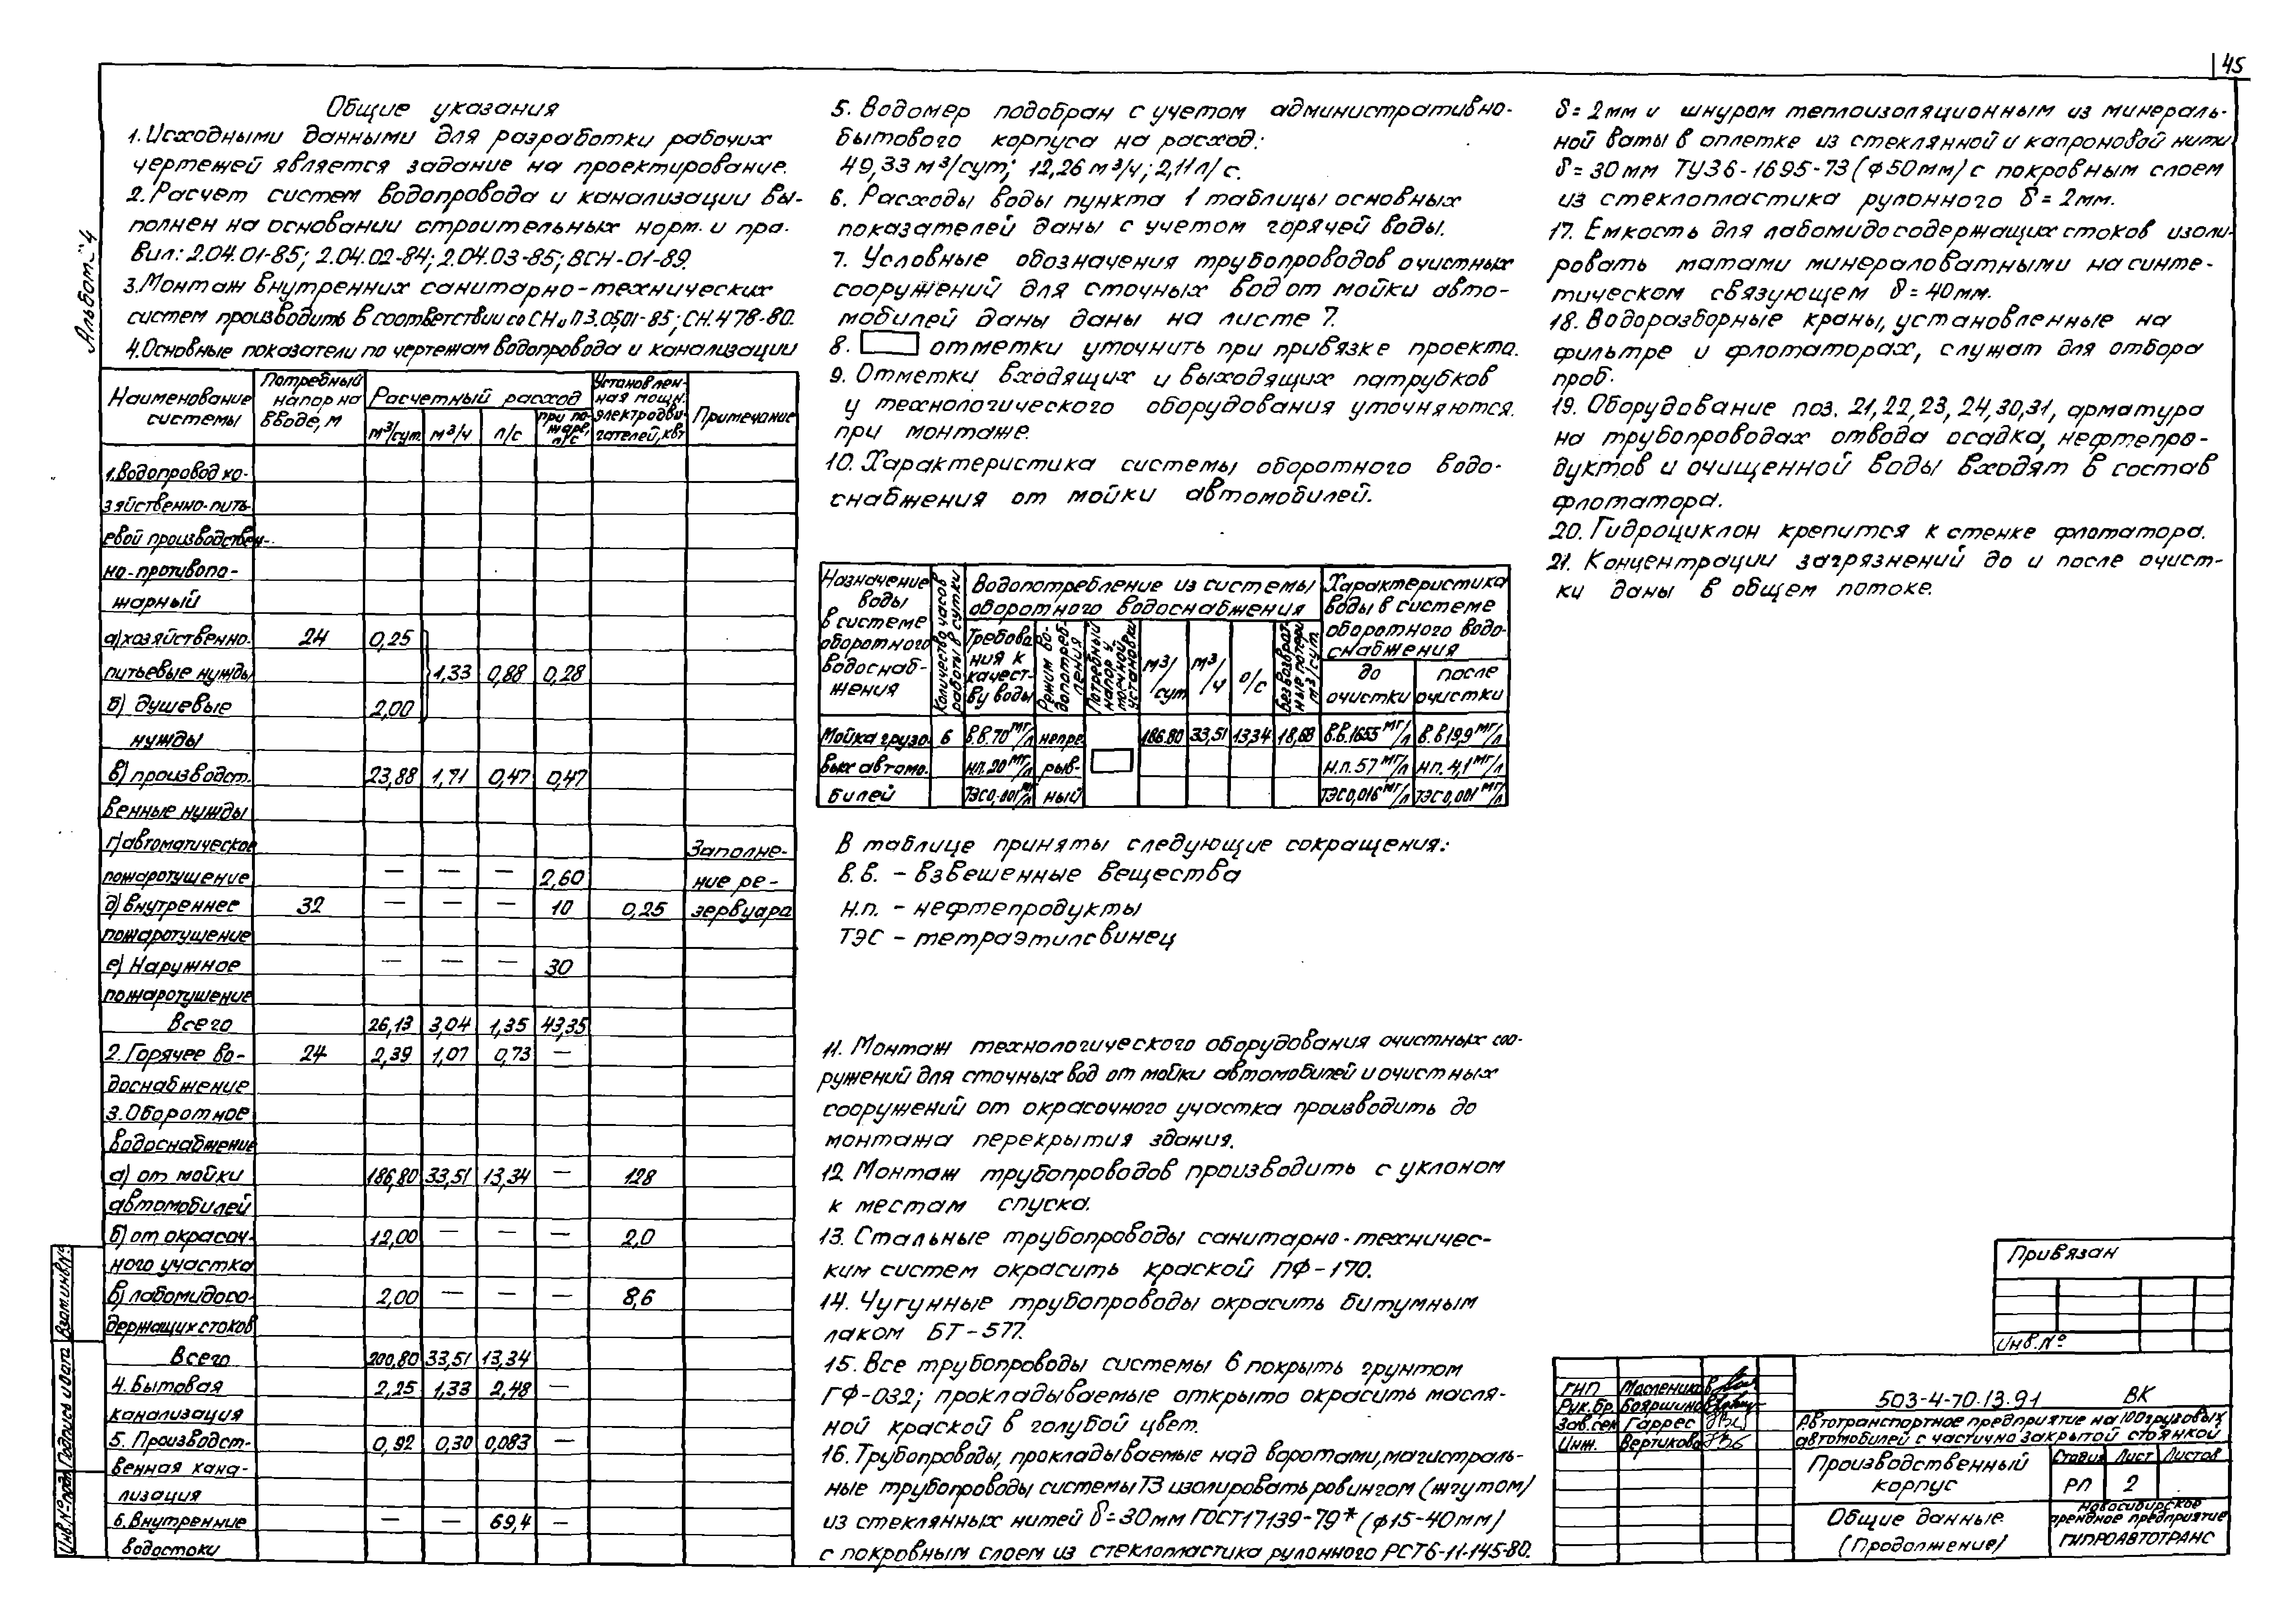 45
Альбом 4
Общие указания
1. Исходными данными для разработки рабочих
чертежей является задание на проектирование.
2. Расчет систем водопровода и канализации вы-
полнен на основании строительных норм. и пра-
вил: 2.04.01-85; 2.04.02-84; 2.04.03-85; ВСН-01-89.
3. Монтаж внутренних санитарно-технических
систем производить в соответствии со СНиП 3.05.01-85; СН.478-80.
4. Основные показатели по чертежам водопровода и канализации
Наименование системы | Потребный напор на вводе, м | Расчетный расход | Установлен-ная мощн. электродви-гателей, кВт | Примечание
м³/сут | м³/ч | л/с | при по-жаре, л/с
1. Водопровод хо-
зяйственно-пить-
евой производствен-
но-противопо-
жарный
а) хозяйственно- 24 0,25
питьевые нужды 1,33 0,88 0,28
б) душевые 2,00
нужды
в) производст. 23,88 1,71 0,47 0,47
венные нужды
г) автоматическое Заполне-
пожаротушение — — — 2,60 ние ре-
д) внутреннее 32 — — — 10 0,25 зервуара
пожаротушение
е) Наружное — — — 30
пожаротушение
Всего 26,13 3,04 1,35 43,35
2. Горячее во- 24 2,39 1,07 0,73 —
доснабжение
3. Оборотное
водоснабжение
а) от мойки 186,80 33,51 13,34 — 128
автомобилей
б) от окрасоч- 12,00 — — — 2,0
ного участка
в) лабомидосо- 2,00 — — — 8,6
держащих стоков
Всего 200,80 33,51 13,34
4. Бытовая 2,25 1,33 2,48 —
канализация
5. Производст- 0,92 0,30 0,083 —
венная кана-
лизация
6. Внутренние — — 69,4 —
водостоки
5. Водомер подобран с учетом административно-
бытового корпуса на расход:
49,33 м³/сут; 12,26 м³/ч; 2,11 л/с.
6. Расходы воды пункта 1 таблицы основных
показателей даны с учетом горячей воды.
7. Условные обозначения трубопроводов очистных
сооружений для сточных вод от мойки авто-
мобилей даны даны на листе 7.
8. отметки уточнить при привязке проекта.
9. Отметки входящих и выходящих патрубков
у технологического оборудования уточняются.
при монтаже.
10. Характеристика системы оборотного водо-
снабжения от мойки автомобилей.
Назначение воды в системе оборотного водоснаб-жения | Количество часов работы в сутки | Водопотребление из системы оборотного водоснабжения | Характеристика воды в системе оборотного водо-снабжения
Требова-ния к качест-ву воды | Режим во-допотреб-ления | Потребный напор у моечной установки | м³/сут | м³/ч | л/с | Безвозврат-ные потери м³/сут. | до очистки | после очистки
Мойка грузо- 6 В.В.70 мг/л непре 186.80 33,51 13,34 18,68 В.В.1655 мг/л В.В 19,9 мг/л
вых автомо- Н.П.20 мг/л рыв- Н.П.57 мг/л Н.П. 4,1 мг/л
билей ТЭС0,001 мг/л ный ТЭС0,016 мг/л ТЭС0,001 мг/л
В таблице приняты следующие сокращения:
В.В. - взвешенные вещества
Н.П. - нефтепродукты
ТЭС - тетраэтилсвинец
11. Монтаж технологического оборудования очистных соо-
ружений для сточных вод от мойки автомобилей и очистных
сооружений от окрасочного участка производить до
монтажа перекрытия здания.
12. Монтаж трубопроводов производить с уклоном
к местам спуска.
13. Стальные трубопроводы санитарно-техничес-
ким систем окрасить краской ПФ-170.
14. Чугунные трубопроводы окрасить битумным
лаком БТ-577.
15. Все трубопроводы системы 6 покрыть грунтом
ГФ-032; прокладываемые открыто окрасить масля-
ной краской в голубой цвет.
16. Трубопроводы, прокладываемые над воротами, магистраль-
ные трубопроводы системы Т3 изолировать ровингом (жгутом)
из стеклянных нитей δ=30мм ГОСТ17139-79* (φ15-40мм)
с покровным слоем из стеклопластика рулонного РСТ6-11-145-80.
δ=2мм и шнуром теплоизоляционным из минераль-
ной ваты в оплетке из стеклянной и капроновой нити
δ=30мм ТУ36-1695-73 (φ50мм) с покровным слоем
из стеклопластика рулонного δ=2мм.
17. Емкость для лабомидосодержащих стоков изоли-
ровать матами минераловатными на синте-
тическом связующем δ=40мм.
18. Водоразборные краны, установленные на
фильтре и флотаторах, служат для отбора
проб.
19. Оборудование поз. 21,22,23,24,30,31, арматура
на трубопроводах отвода осадка, нефтепро-
дуктов и очищенной воды входят в состав
флотатора.
20. Гидроциклон крепится к стенке флотатора.
21. Концентрации загрязнений до и после очист-
ки даны в общем потоке.
Привязан
Инв.№
ГИП
Рук.бр.
Зав.сек Гаррес
Инж. Вертикова
503-4-70.13.91 ВК
Автотранспортное предприятие на 100 грузовых
автомобилей с частично закрытой стоянкой
Производственный
корпус
Стадия Лист Листов
РП 2
Общие данные
(Продолжение)
Новосибирское
арендное предприятие
ГИПРОАВТОТРАНС
Взам.инв.№
Подпись и дата
Инв.№ подл.